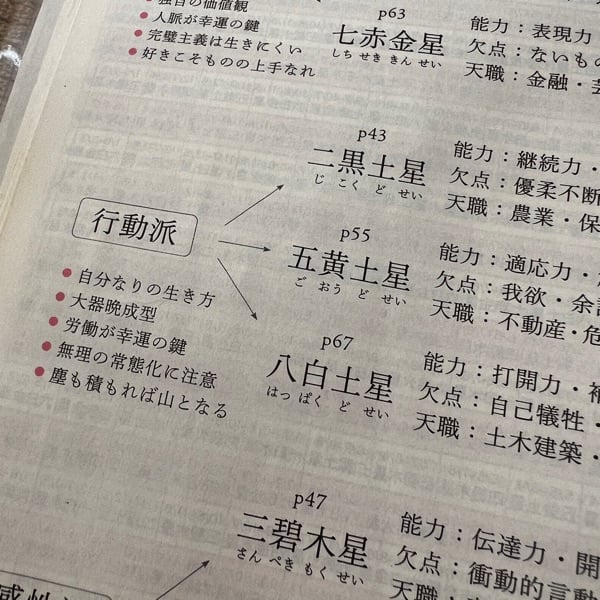 独自の価値観
人脈が幸運の鍵
完璧主義は生きにくい
好きこそものの上手なれ
p63
七赤金星
しち せき きん せい
能力：表現力
欠点：ないもの
天職：金融・芸
行動派
自分なりの生き方
大器晩成型
労働が幸運の鍵
無理の常態化に注意
塵も積もれば山となる
p43
二黒土星
じ こく ど せい
能力：継続力・
欠点：優柔不断
天職：農業・保
p55
五黄土星
ご おう ど せい
能力：適応力・
欠点：我欲・余計
天職：不動産・危
p67
八白土星
はっ ぱく ど せい
能力：打開力・補
欠点：自己犠牲・
天職：土木建築・
p47
三碧木星
さん ぺき もく せい
能力：伝達力・開
欠点：衝動的言動
感性